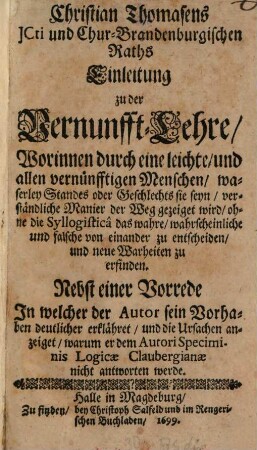 Christian Thomasens
JCti und Chur-Brandenburgischen
Raths
Einleitung
zu der
Vernunfft-Lehre/
Worinnen durch eine leichte/und
allen vernünfftigen Menschen/ wa-
serley Standes oder Geschlechts sie seyn/ ver-
ständliche Manier der Weg gezeiget wird/ oh-
ne die Syllogisticâ das wahre/ wahrscheinliche
und falsche von einander zu entscheiden/
und neue Warheiten zu
erfinden.
Nebst einer Vorrede
In welcher der Autor sein Vorha-
ben deutlicher erklähret/ und die Ursachen an-
zeiget/ warum er dem Autori Specimi-
nis Logicæ Claubergianæ
nicht antworten werde.
Halle in Magdeburg/
Zu finden/ bey Christoph Salfeld und im Rengeri-
schen Buchladen/ 1699.